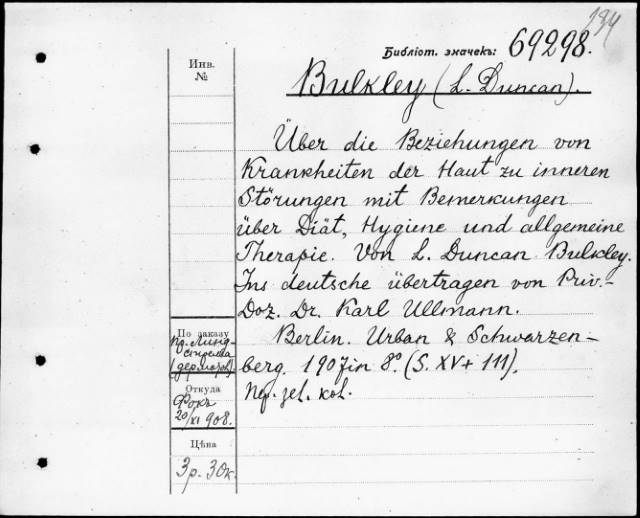 194
Библіот. значекъ: 69298.
Инв.
№
Bulkley (L. Duncan).
Über die Beziehungen von
Krankheiten der Haut zu inneren
Störungen mit Bemerkungen
über Diät, Hygiene und allgemeine
Therapie. Von L. Duncan Bulkley.
Ins deutsche übertragen von Priv.-
Doz. Dr. Karl Ullmann.
Berlin. Urban & Schwarzen-
berg. 1907 in 8º. (S. XV + 111).
По заказу
Откуда
Фокъ
20/XI 908.
Цѣна
3 р. 30 к.